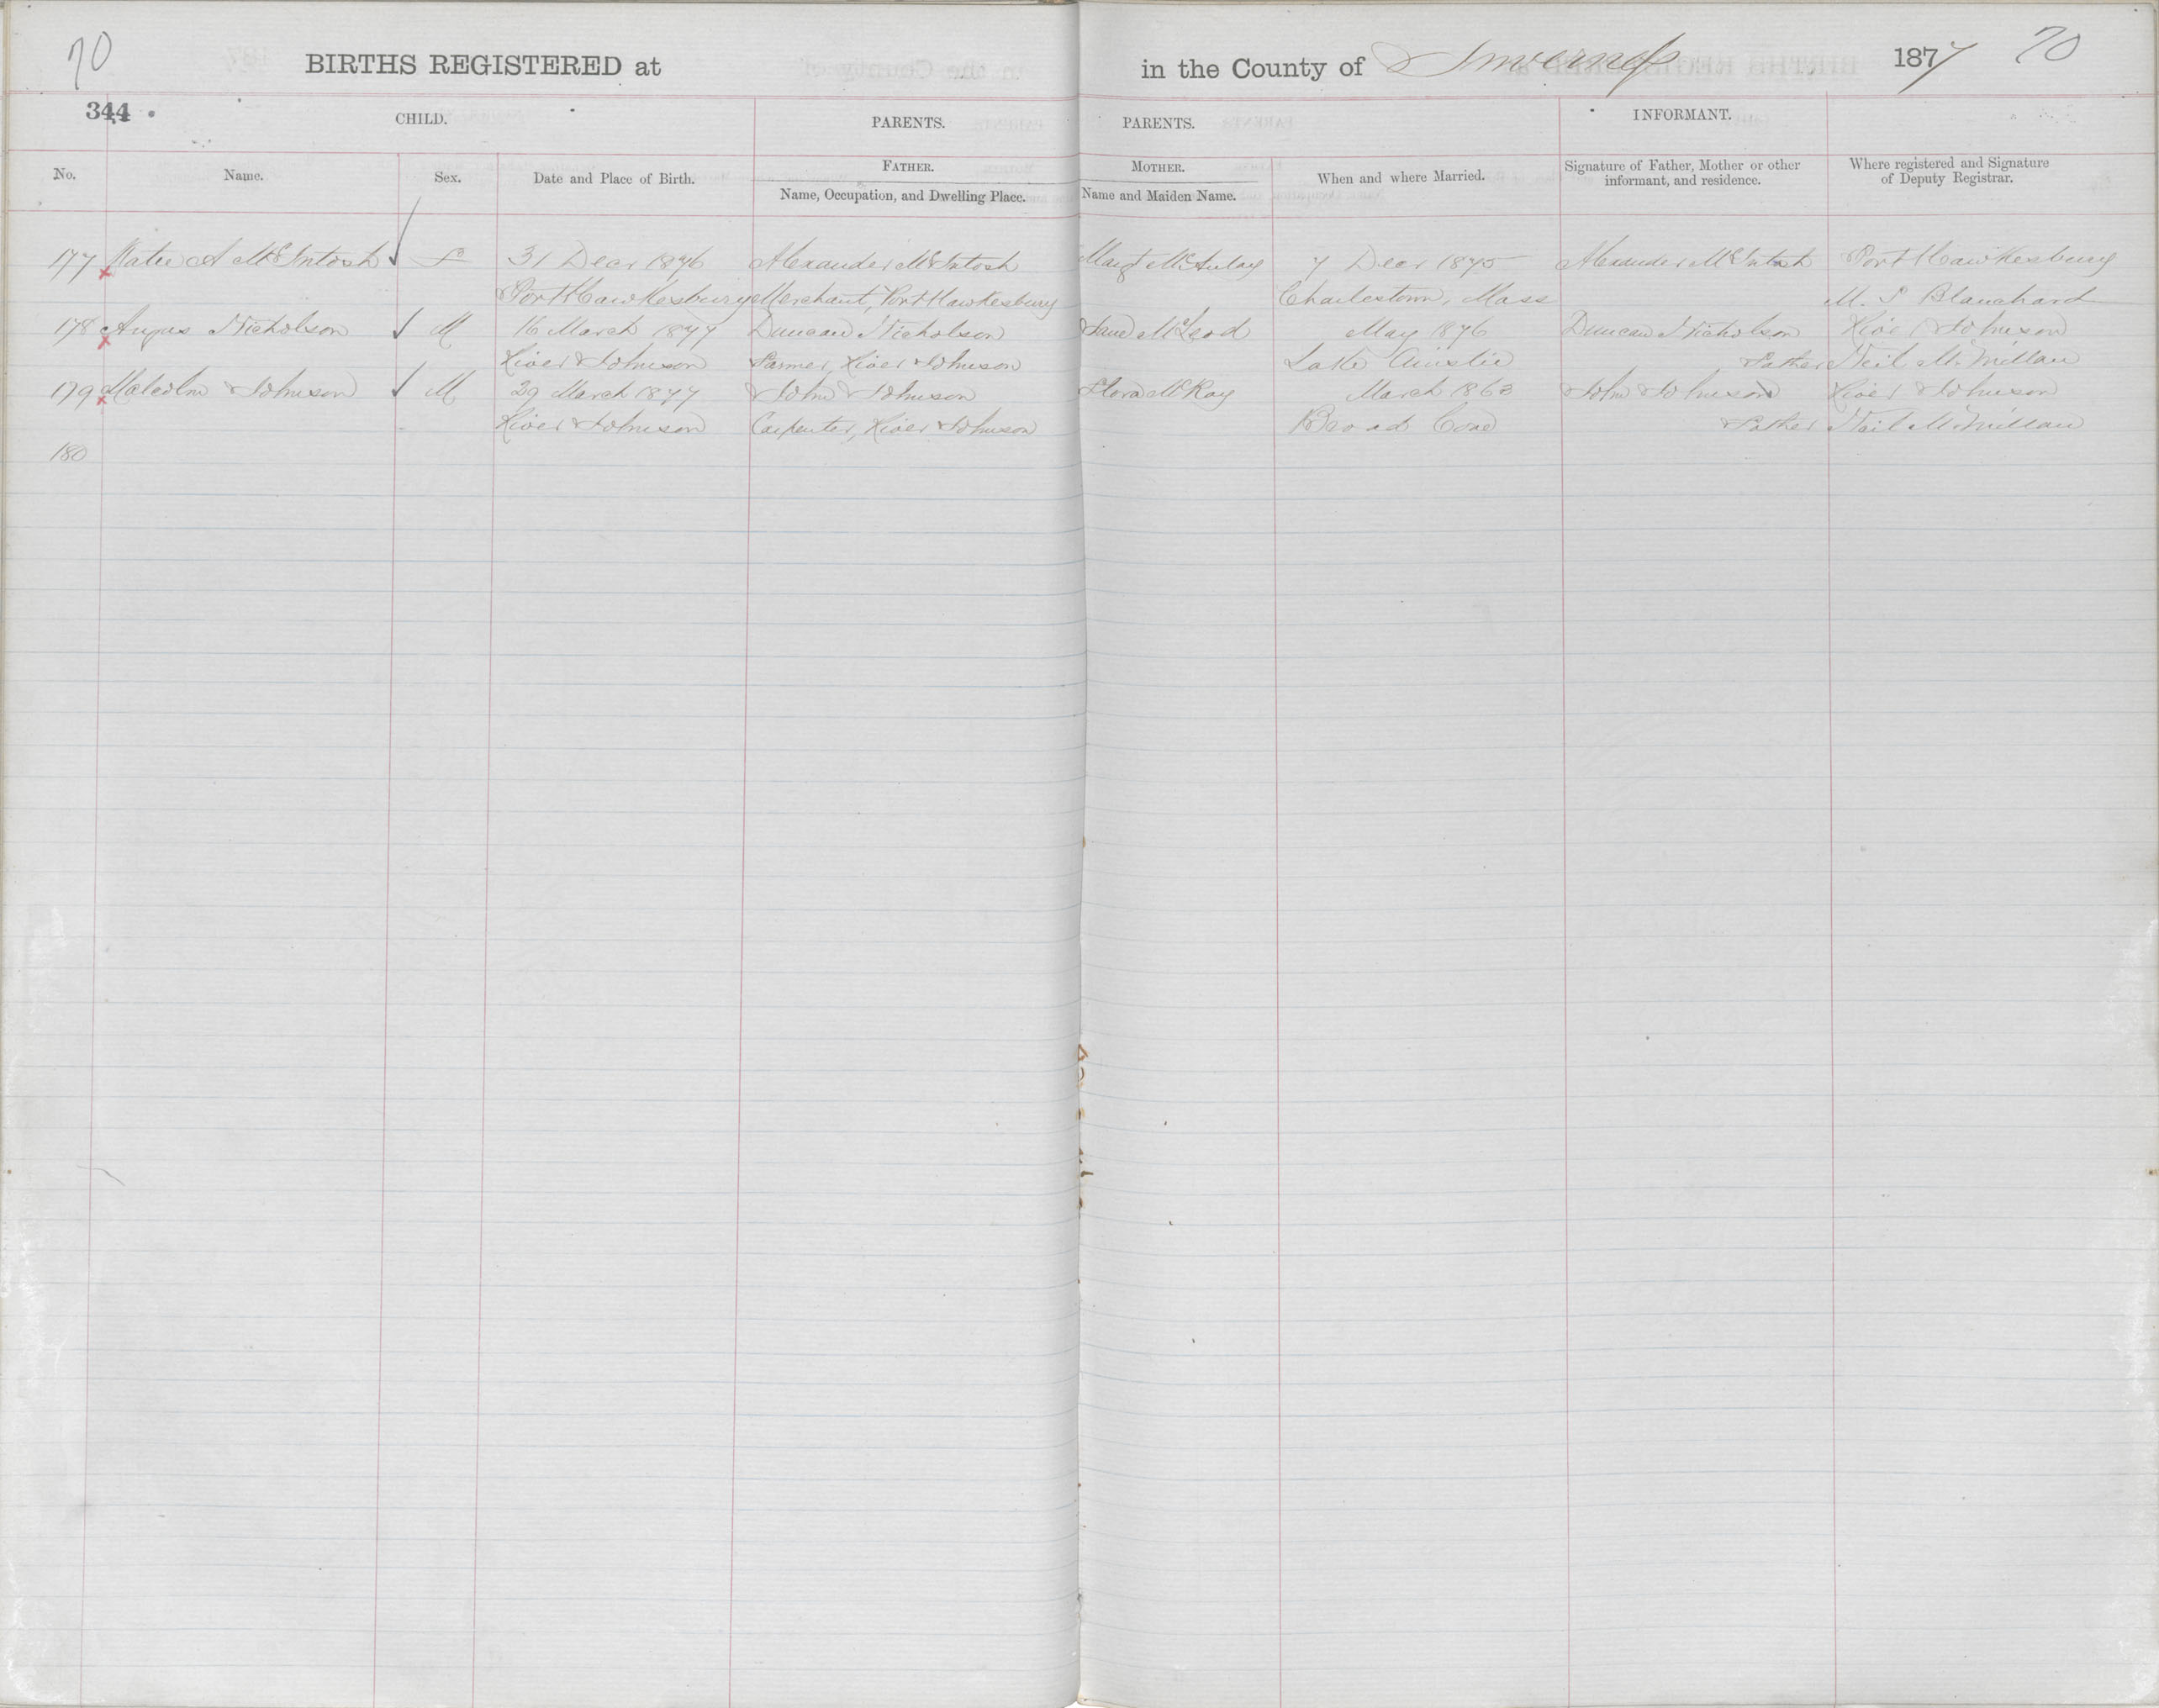 70 BIRTHS REGISTERED at in the County of Inverness 1877 70
344
CHILD. PARENTS. PARENTS. INFORMANT.
No. Name. Sex. Date and Place of Birth. FATHER. Name, Occupation, and Dwelling Place. MOTHER. Name and Maiden Name. When and where Married. Signature of Father, Mother or other informant, and residence. Where registered and Signature of Deputy Registrar.
177 Katie A McIntosh F 31 Decr 1876 Alexander McIntosh Margt McAulay 7 Decr 1875 Alexander McIntosh Port Hawkesbury
Port Hawkesbury Merchant, Port Hawkesbury Charlestown, Mass M. P Blanchard
178 Angus Nicholson M 16 March 1877 Duncan Nicholson Jane McLeod May 1876 Duncan Nicholson River Johnson
River Johnson Farmer, River Johnson Lake Ainslie Father Neil McMillan
179 Malcolm Johnson M 29 March 1877 John Johnson Flora McKay March 1863 John Johnson River Johnson
River Johnson Carpenter, River Johnson Broad Cove Father Neil McMillan
180